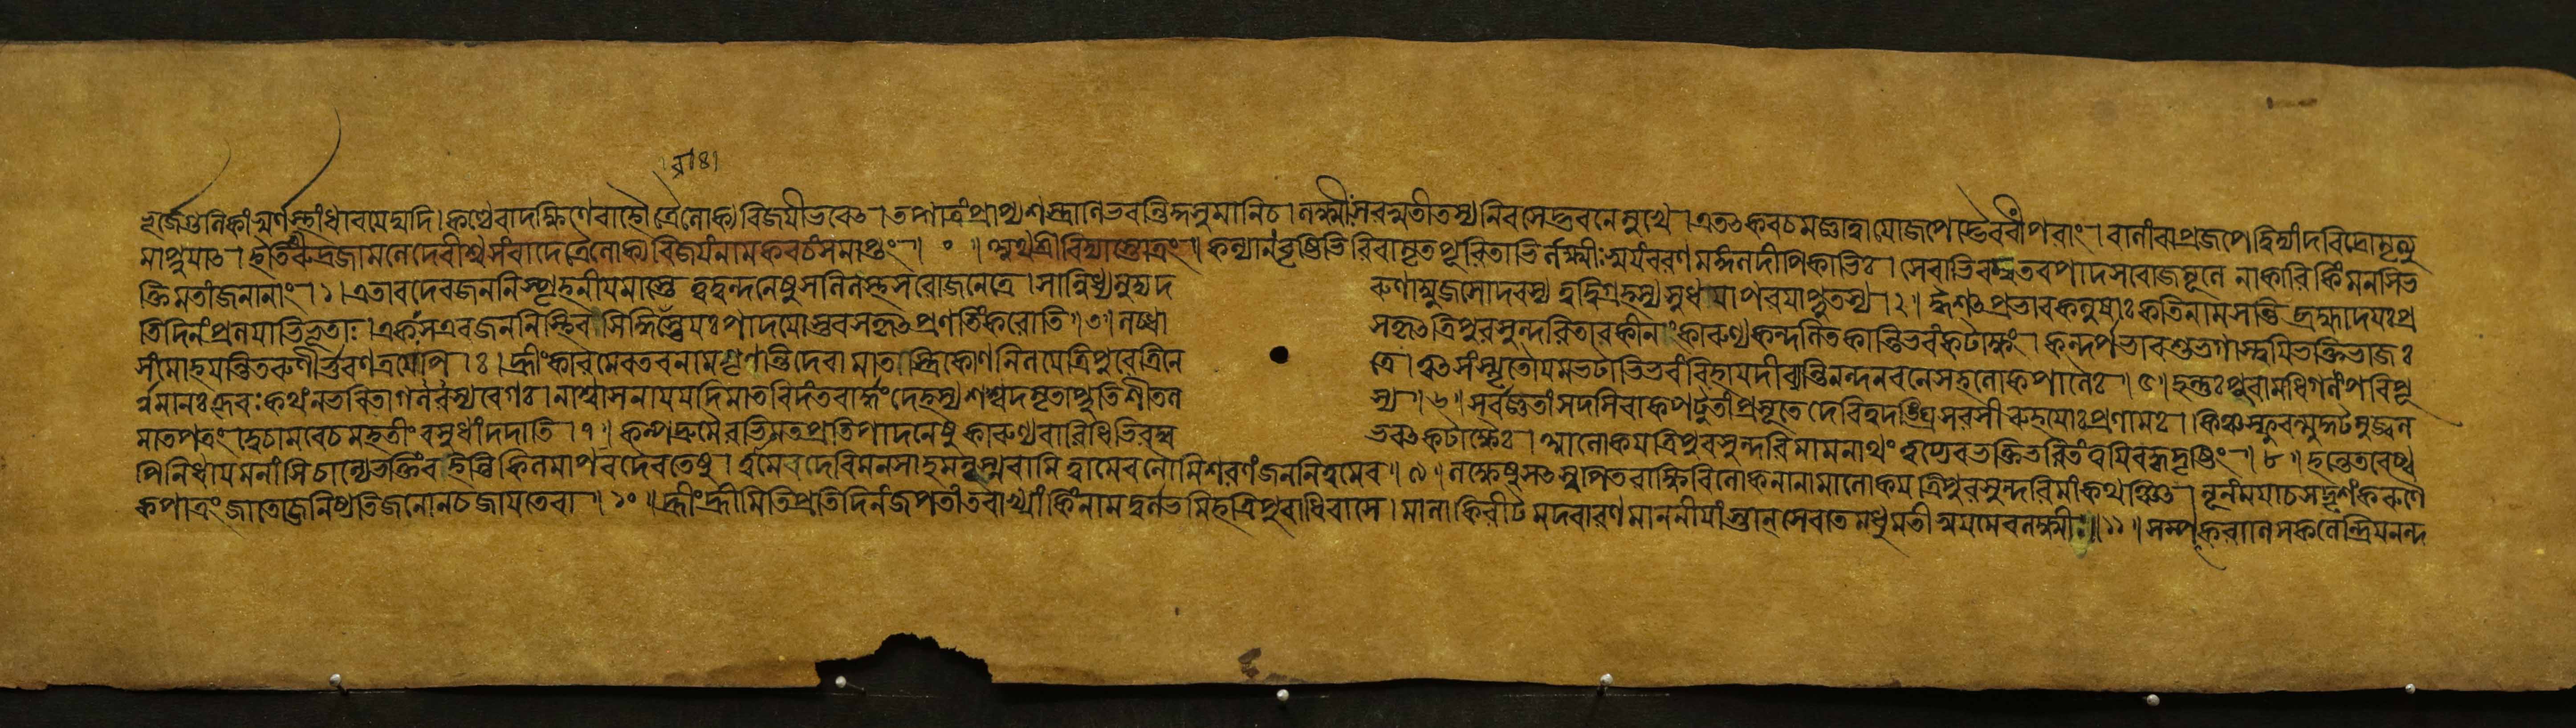 ভূর্জেগুলিকাং স্বর্ণস্থাংধারয়েদ্যদি। কণ্ঠেবাদক্ষিণেবাহৌ ত্রৈলোক্যবিজয়ীভবেৎ। তদ্গাত্রংপ্রাপ্যশস্ত্রাণিভবন্তিকুসুমানিচ। লক্ষ্মীঃসরস্বতীতস্যনিবসেদ্ভবনেমুখে। এতৎকবচমজ্ঞাত্বাযোজপেদ্ভৈরবীংপরাং। বালাংবাপ্রজপেদ্বিদ্যাংদরিদ্রোমৃত্যু
মাপ্নুয়াৎ। ইতিশ্রীরুদ্রজামলেদেবীশ্বরসংবাদেত্রৈলোক্যবিজয়ংনামকবচংসমাপ্তং॥ ০ ॥ অথশ্রীবিদ্যাস্তোত্রং॥ কল্যাণবৃষ্টিভিরিবামৃতপূরিতাভির্লক্ষ্মীঃস্বয়ংবরণমঙ্গলদীপিকাভিঃ। সেবাভিরম্বতবপাদসরোজমূলে নাকারিকিংমনসিভ
ক্তিমতাংজনানাং।১। এতাবদেবজননিস্পৃহনীয়মাস্তে ত্বদ্বন্দনেষুসলিলস্থসরোজনেত্রে। সান্নিধ্যমুদ্যদ রুণাম্বুজসোদরস্য ত্বদ্বিগ্রহস্যসুধয়াপরয়াপ্লুতস্য।২। প্রভাবকলুষাঃকতিনামসন্তি ব্রহ্মাদয়ঃপ্র
তিদিনংপ্রলয়াভিভূতাঃ। একঃসএবজননিস্থিরসিদ্ধিরাস্তেযঃপাদয়োস্তবসকৃৎপ্রণতিংকরোতি॥৩॥ লব্ধা সকৃৎত্রিপুরসুন্দরিতাবকীনংকারুণ্যকন্দলিতকান্তিভরংকটাক্ষং। কন্দর্পভাবশুভগাস্ত্বয়িভক্তিভাজঃ
সংমোহয়ন্তিতরুণীর্ভুবনত্রয়েপি।৪। হ্রীংকারমেবতবনামগৃণন্তিদেবা মাতস্ত্রিকোণনিলয়েত্রিপুরেত্রিনে ত্রে। ত্বৎসংস্মৃতৌযমভটাভিভবংবিহায়দীব্যন্তিনন্দনবনেসহলোকপালৈঃ॥৫॥ হন্তুঃপুরামধিগলংপরিপূ
র্যমানঃক্রূরঃকথংনভবিতাগরলস্যবেগঃ। নাশ্বাসনায়যদিমাতরিদংতবার্দ্ধংদেহস্যশশ্বদমৃতাপ্লুতিশীতল স্য॥৬॥ সর্বজ্ঞতাংসদসিবাক্পটুতাংপ্রসূতে দেবিত্বদঙ্ঘ্রিসরসীরুহয়োঃপ্রণামঃ। কিঞ্চস্ফুরন্মুকুটমুজ্জ্বল
মাতপত্রং দ্বেচামরেচমহতীংবসুধাংদদাতি।৭। কল্পদ্রুমৈরভিমতপ্রতিপাদনেষু কারুণ্যবারিধিভিরম্ব ভবৎকটাক্ষৈঃ। আলোকয়ত্রিপুরসুন্দরিমামনাথং ত্বয্যেবভক্তিভরিতংত্বয়িবদ্ধদৃষ্টিং॥৮॥ হন্তেতরেষ্ব
পিনিধায়মনাংসিচান্যেভক্তিং মেবদেবিমনসাহমনুস্মরামি ত্বামেবনৌমিশরণংজননিত্বমেব॥৯॥ লক্ষেষুসৎস্বপিতবাক্ষিবিলোকনানামালোকয়ত্রিপুরসুন্দরিমাংকথঞ্চিৎ। নূনংময়াচসদৃশংকরুণৈ
কপাত্রং জাতোজনিষ্যতিজনোনচজায়তেবা॥১০॥ হ্রীংহ্রীমিতিপ্রতিদিনংজপতাংতবাখ্যাং কিংনামদুর্লভমিহত্রিপুরাধিবাসে। মালাকিরীটমদবারণমাননীয়াংস্তান্সেবতেমধুমতীস্বয়মেবলক্ষ্মীঃ॥১১॥ সম্পৎকরাণিসকলেন্দ্রিয়নন্দ